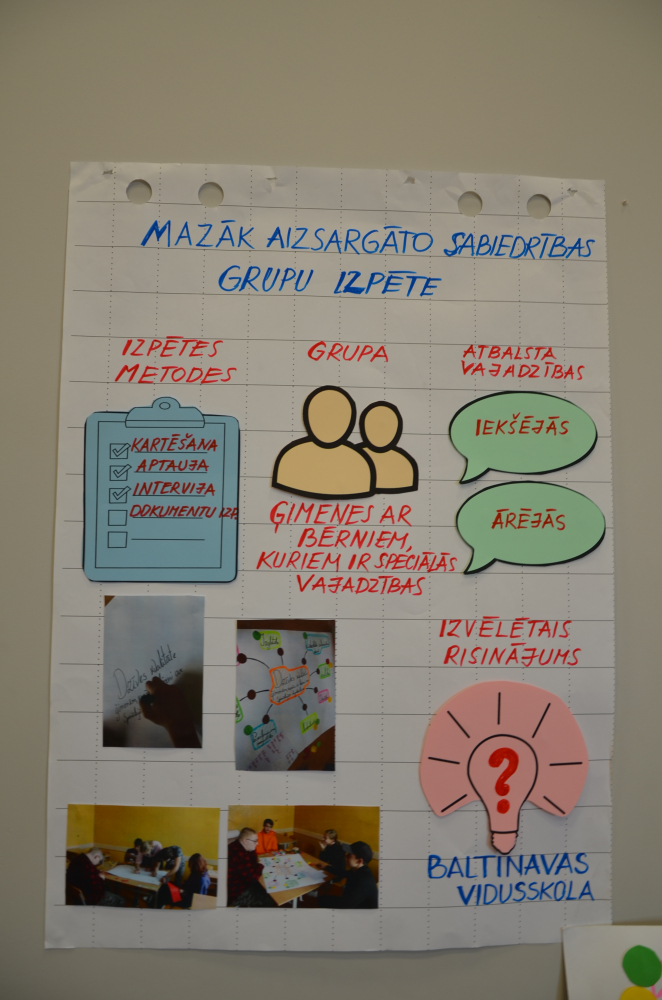 MAZĀK AIZSARGĀTO SABIEDRĪBAS
GRUPU IZPĒTE
IZPĒTES
METODES
KARTĒŠANA
APTAUJA
INTERVIJA
DOKUMENTU IZP.
GRUPA
ĢIMENES AR
BĒRNIEM,
KURIEM IR SPECIĀLĀS
VAJADZĪBAS
ATBALSTA
VAJADZĪBAS
IEKŠĒJĀS
ĀRĒJĀS
IZVĒLĒTAIS
RISINĀJUMS
?
BALTINAVAS
VIDUSSKOLA